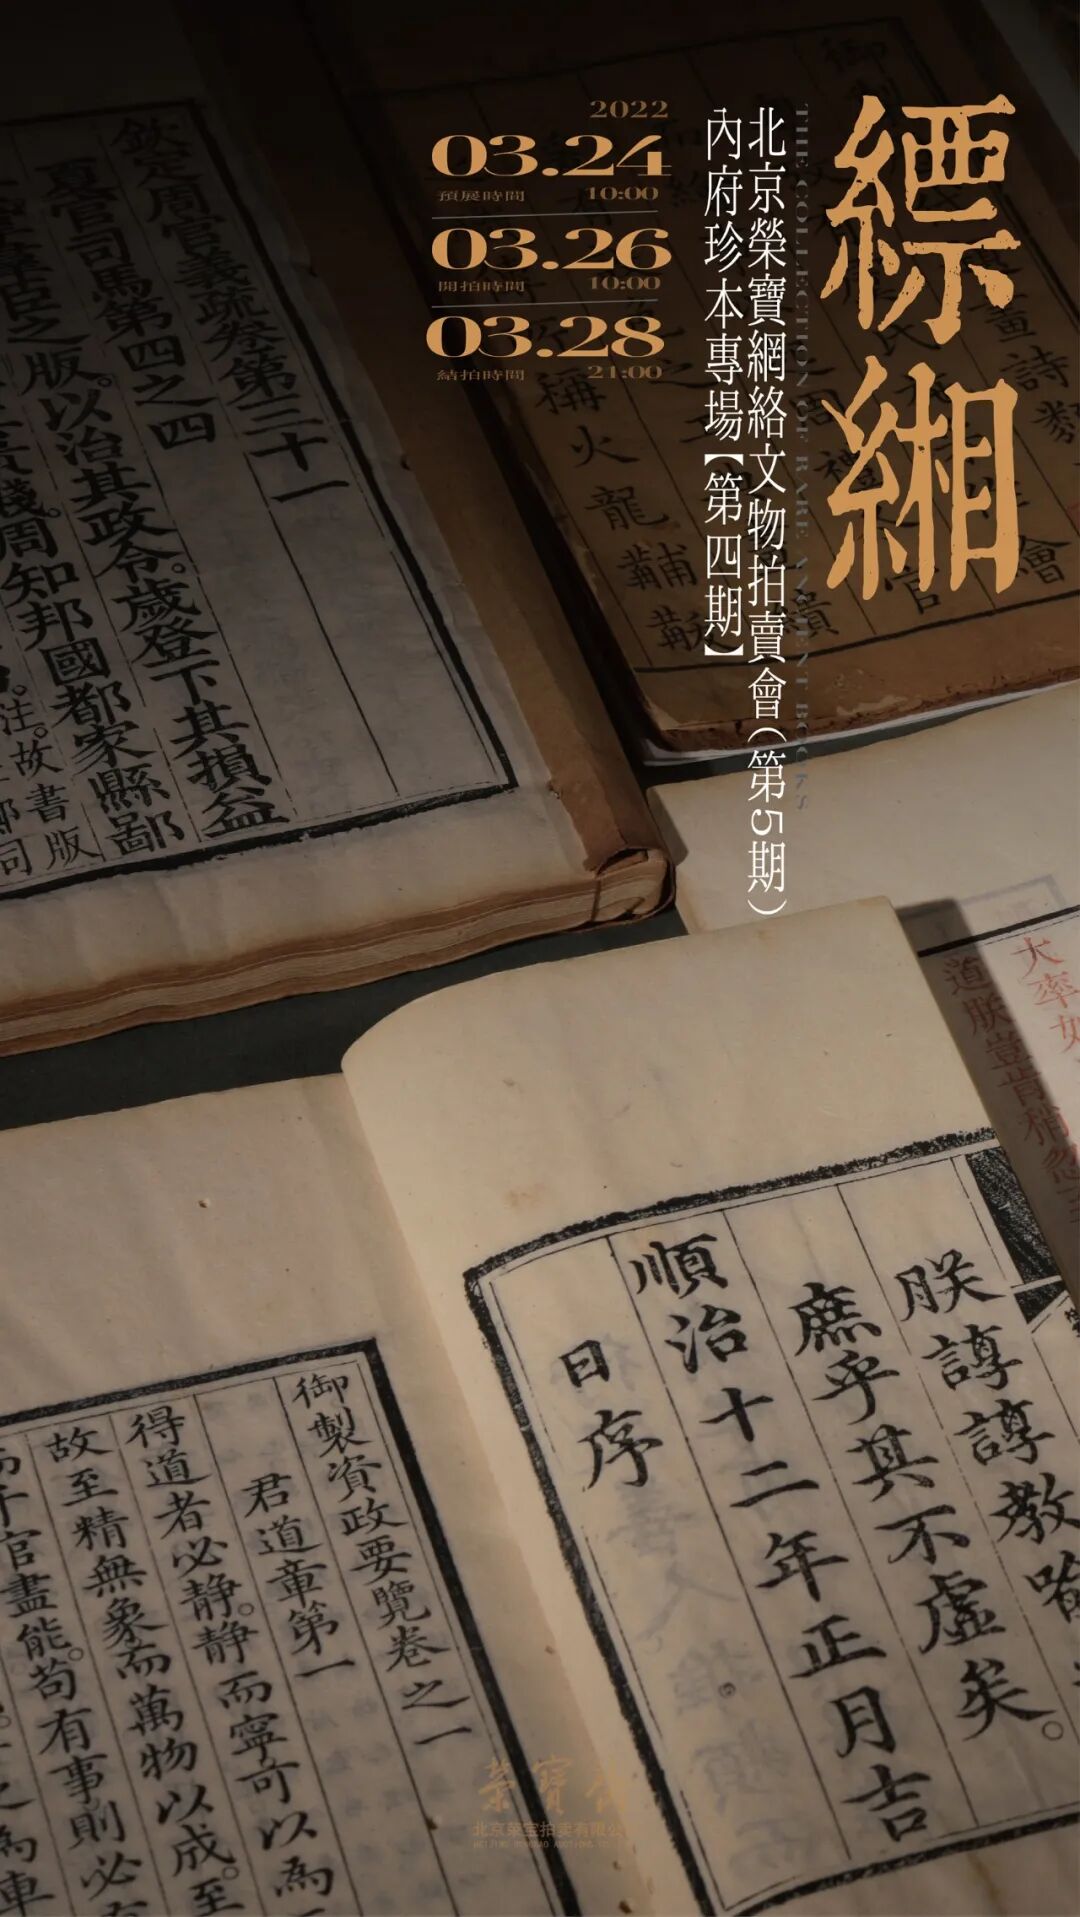 縹緗
THE COLLECTION OF RARE ANCIENT BOOKS
北京榮寶網絡文物拍賣會(第5期)
內府珍本專場【第四期】
2022
03.24
預展時間 10:00
03.26
開拍時間 10:00
03.28
結拍時間 21:00
欽定周官義疏卷第三十一
夏官司馬第四之四
版。以治其政令。歲登下其損益
周知邦國都家縣鄙
注。故書版
大率如
道朕豈肯稍忽
朕諄諄教喻
庶乎其不虛矣。
順治十二年正月吉
日序
御製資政要覽卷之一
君道章第一
得道者必靜。靜而寧可以為
故至精無象而萬物以成。至
千官盡能。苟有事則必
榮寶齋
北京荣宝拍卖有限公